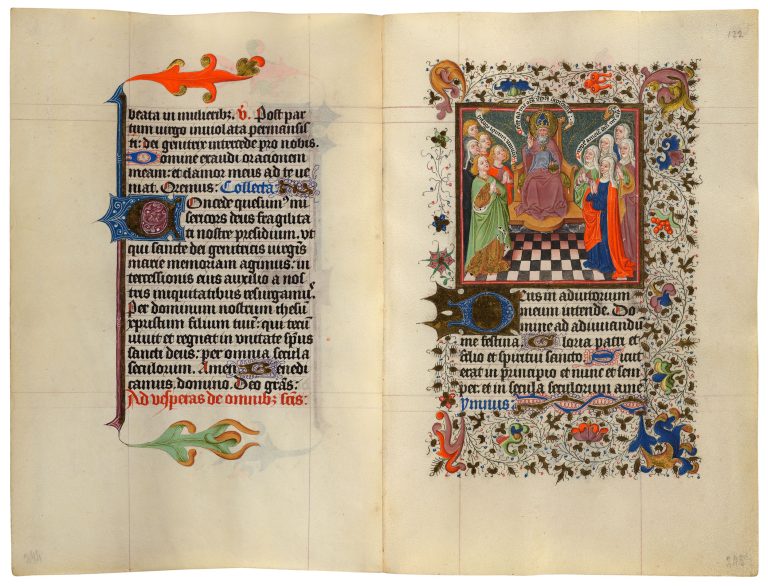 beata in mulieribz. V. Post par
tum uirgo inuiolata permansis
ti: dei genitrix intercede pro nobis.
Domine exaudi oracionem
meam: et clamor meus ad te ue
niat. Oremus: Collecta
Concede quesum⁹ mi
sericors deus fragilita
ti nostre presidium. vt
qui sancte dei genitricis uirgīs
marie memoriam agimus: in
tercessionis eius auxilio a nos
tris iniquitatibus resurgamus.
Per dominum nostrum ihesū
xpristum filium tuū: qui tecū
uiuit et regnat in vnitate sp̄us
sancti deus: per omnia secula
seculorum. Amen. Benedi
camus. domino. Deo grās:
Ad vesperas de omnibz scīs:
122
Deus in adiutorium
meum intende. Do
mine ad adiuuandū
me festina. Gloria patri et
filio et spiritui sancto. Sicut
erat in principio et nunc et sem
per: et in secula seculorum amē
ymnus:
244
245